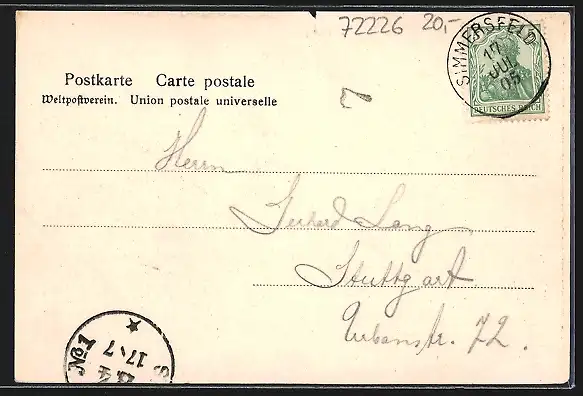 72226 20,-
SIMMERSFELD
17
JUL
05
DEUTSCHES REICH
Postkarte Carte postale
Weltpostverein. Union postale universelle
7
Herrn
Gerhard Lang
Stuttgart
Urbanstr. 72.
No1
17 7